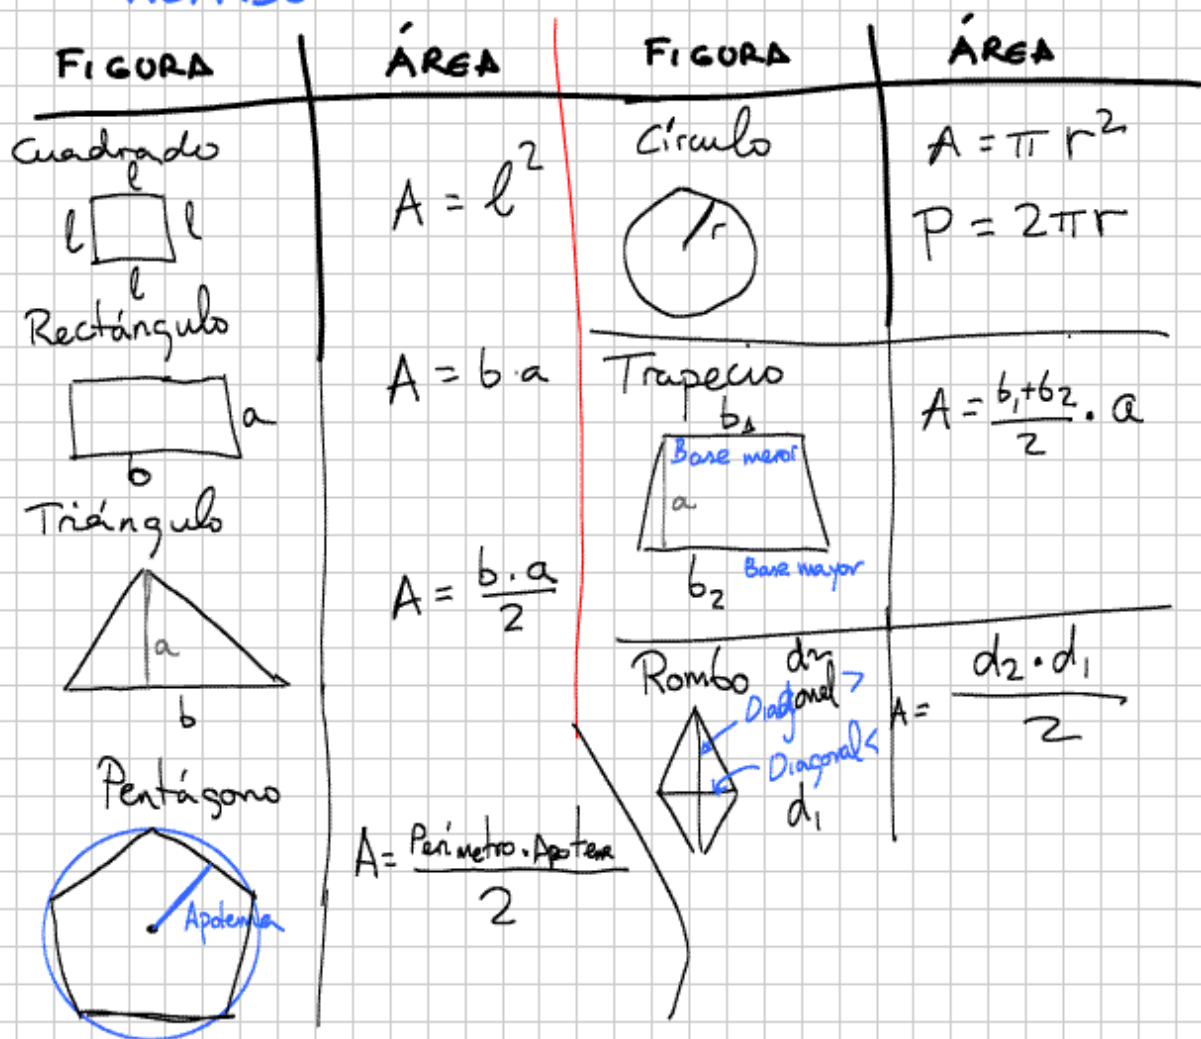 FIGURA
ÁREA
Cuadrado
l
l
l
l
A = l²
Rectángulo
a
b
A = b·a
Triángulo
a
b
A = b·a/2
Pentágono
Apotema
A = Perímetro·Apotema/2
FIGURA
ÁREA
Círculo
r
A = π r²
P = 2πr
Trapecio
b₁
Base menor
a
b₂
Base mayor
A = b₁+b₂/2 · a
Rombo
d₂
Diagonal >
Diagonal <
d₁
A = d₂·d₁/2